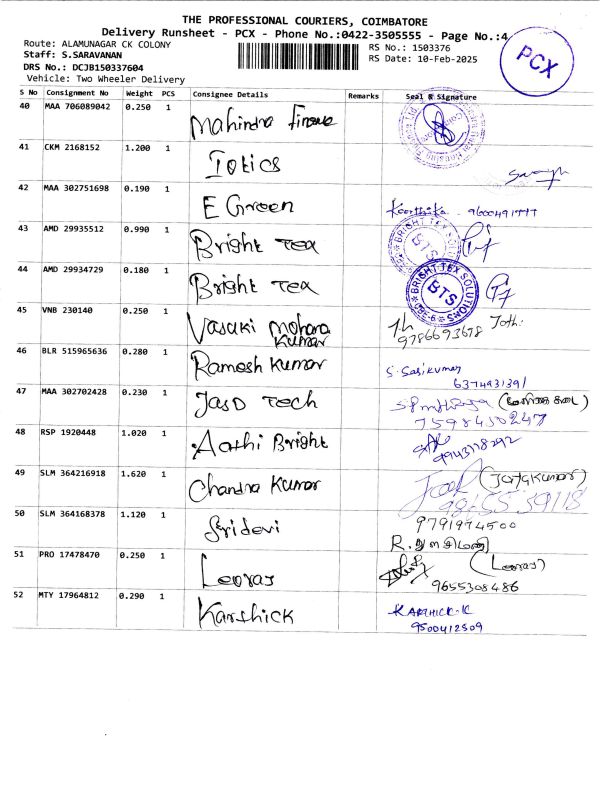 THE PROFESSIONAL COURIERS, COIMBATORE
Delivery Runsheet - PCX - Phone No.:0422-3505555 - Page No.:4
Route: ALAMUNAGAR CK COLONY
Staff: S.SARAVANAN
DRS No.: DCJB150337604
Vehicle: Two Wheeler Delivery
RS No.: 1503376
RS Date: 10-Feb-2025
PCX
S No Consignment No Weight PCS Consignee Details Remarks Seal & Signature
40 MAA 706089042 0.250 1 Mahindra Finance
41 CKM 2168152 1.200 1 Iotics
42 MAA 302751698 0.190 1 E Green Keerthika - 9600491777
43 AMD 29935512 0.990 1 Bright Tex BRIGHT TEX BTS
44 AMD 29934729 0.180 1 Bright Tex BRIGHT TEX SOLUTIONS BTS
45 VNB 230140 0.250 1 Vasaki Mohana Kumar 9786693678
46 BLR 515965636 0.280 1 Ramesh Kumar S. Sasikumar
6374931391
47 MAA 302702428 0.230 1 Jasd Tech
7598430247
48 RSP 1920448 1.020 1 Aathi Bright 9943118292
49 SLM 364216918 1.620 1 Chandra Kumar (Jayakumar)
9865559118
50 SLM 364168378 1.120 1 Sridevi 9791974500
R. துளசிமணி
51 PRO 17478470 0.250 1 Leoraj (Leoraj)
9655308486
52 MTY 17964812 0.290 1 Karthick KARTHICK-K
9500412509